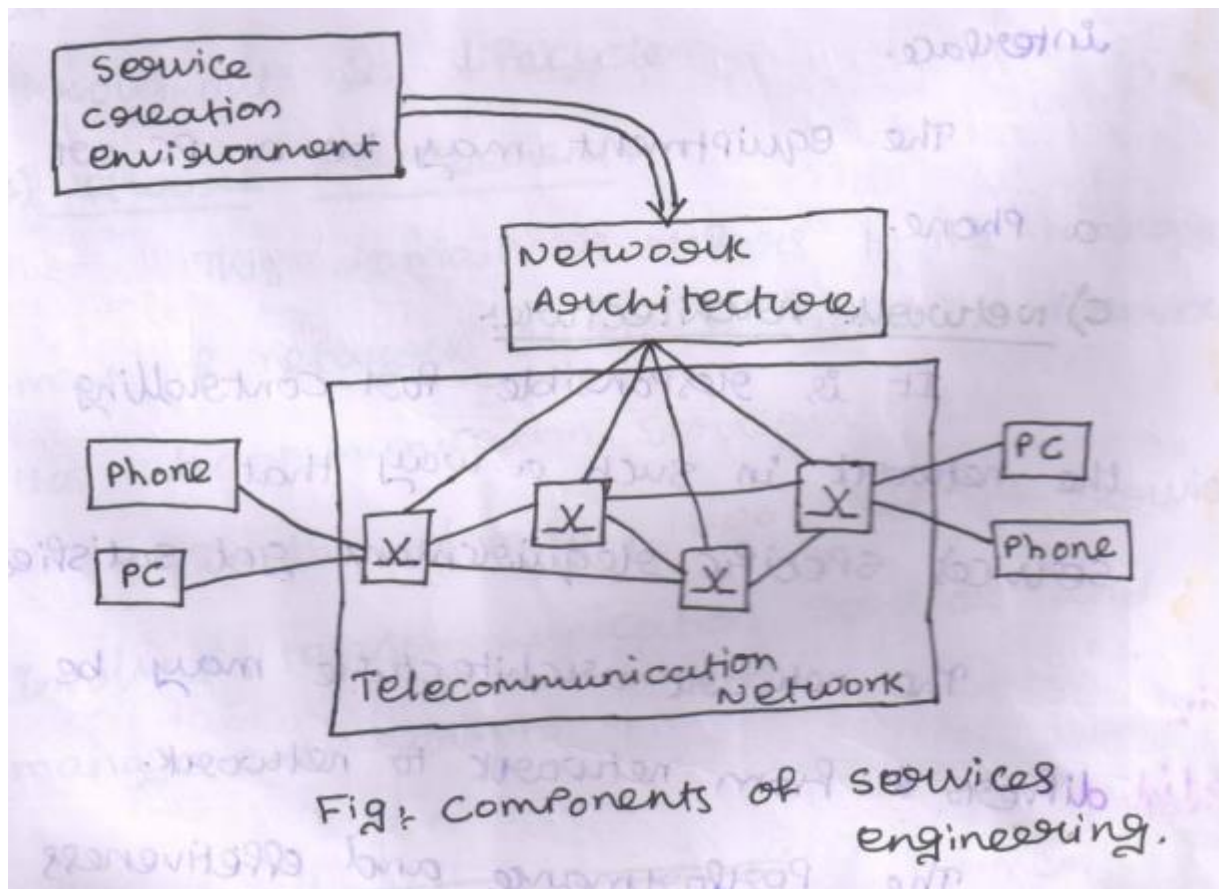 Service
creation
environment
Network
Architecture
Phone
PC
X
X
X
X
PC
Phone
Telecommunication
Network
Fig: Components of services
engineering.